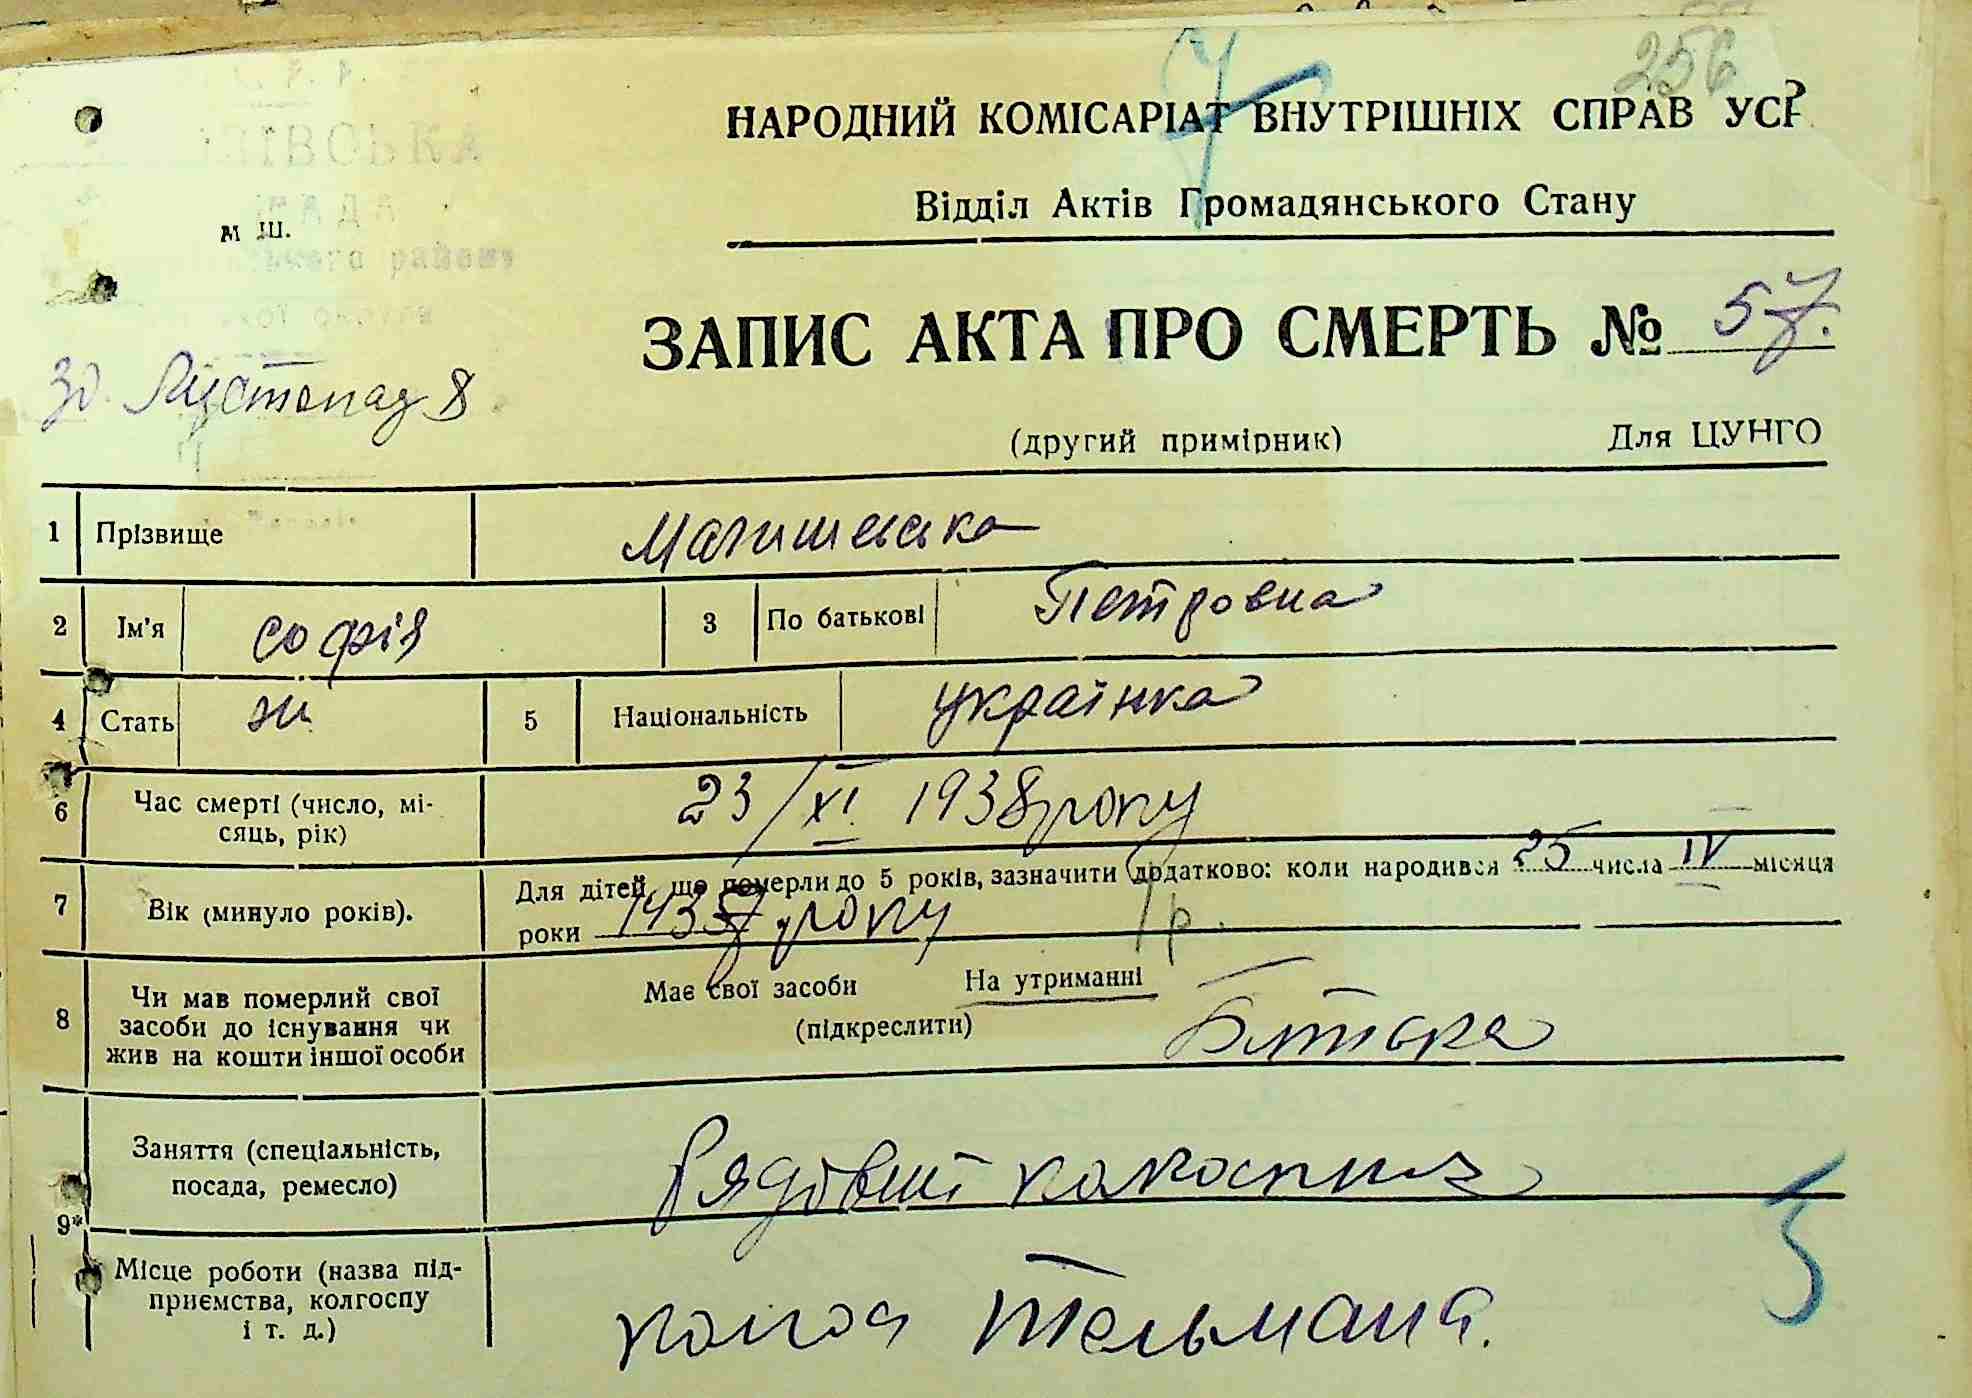 256
7
НАРОДНИЙ КОМІСАРІАТ ВНУТРІШНІХ СПРАВ УСР
Відділ Актів Громадянського Стану
м Ш.
ЗАПИС АКТА ПРО СМЕРТЬ № 57.
30. Листопад 8
(другий примірник) Для ЦУНГО
1 Прізвище Малишевська
2 Ім'я Софія 3 По батькові Петровна
4 Стать ж 5 Національність українка
6 Час смерті (число, мі-
сяць, рік) 23/XI 1938 року
7 Вік (минуло років). Для дітей, що померли до 5 років, зазначити додатково: коли народився 25 числа IV місяця
роки 1937 року 1 р.
8 Чи мав померлий свої
засоби до існування чи
жив на кошти іншої особи
Має свої засоби На утриманні
(підкреслити) Батька
9* Заняття (спеціальність,
посада, ремесло) Рядовий колгоспник
Місце роботи (назва під-
приємства, колгоспу
і т. д.) колгос Тельмана.